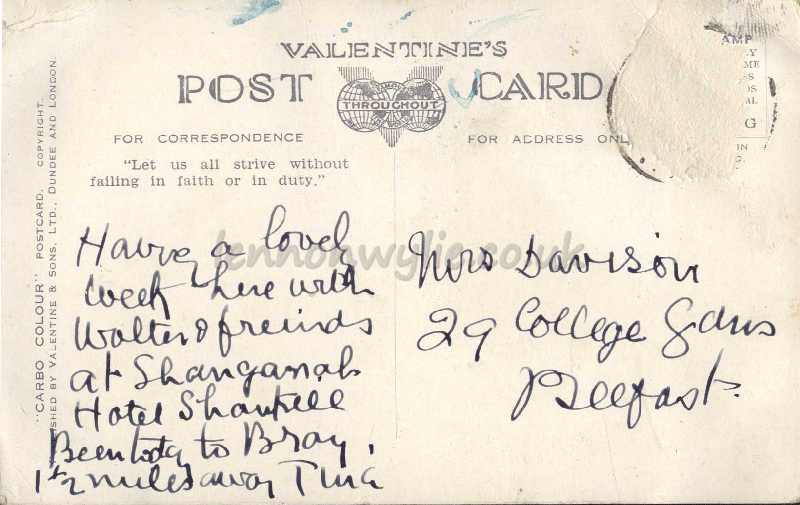 VALENTINE'S
POST CARD
FAMOUS
THROUGHOUT
THE WORLD
FOR CORRESPONDENCE
FOR ADDRESS ONL
"Let us all strive without
failing in faith or in duty."
"CARBO COLOUR" POSTCARD. COPYRIGHT.
SHED BY VALENTINE & SONS, LTD., DUNDEE AND LONDON.
Having a lovely
week here with
Walter & freinds
at Shanganah
Hotel Shankill
Been today to Bray,
1½ miles away Tina
Mrs Davison
29 College Gdns
Belfast.
lennonwylie.co.uk
AMP
LY
ME
SS
OS
AL
G
IN
O.